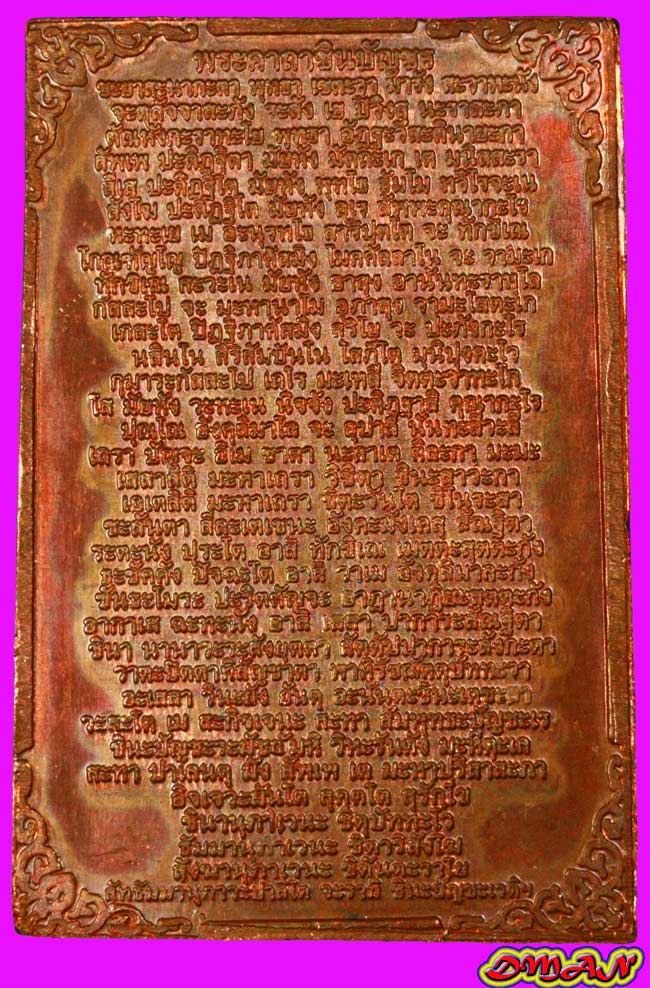 พระคาถาชินบัญชร
ชะยาสะนากะตา พุทธา เชตะวา มารัง สะวาหะนัง
จะตุสัจจาสะภัง ระสัง เย ปิวิงสุ นะราสะภา
ตัณหังกะราทะโย พุทธา อัฏฐะวีสะติ นายะกา
สัพเพ ปะติฏฐิตา มัยหัง มัตถะเก เต มุนิสสะรา
สีเส ปะติฏฐิโต มัยหัง พุทโธ ธัมโม ทวิโลจะเน
สังโฆ ปะติฏฐิโต มัยหัง อุเร สัพพะคุณากะโร
หะทะเย เม อะนุรุทโธ สารีปุตโต จะ ทักขิเณ
โกณฑัญโญ ปิฏฐิภาคัสมิง โมคคัลลาโน จะ วามะเก
ทักขิเณ สะวะเน มัยหัง อาสุง อานันทะราหุโล
กัสสะโป จะ มะหานาโม อุภาสุง วามะโสตะเก
เกสะโต ปิฏฐิภาคัสมิง สุริโย วะ ปะภังกะโร
นิสินโน สิริสัมปันโน โสภิโต มุนิปุงคะโว
กุมาระกัสสะโป เถโร มะเหสี จิตตะวาทะโก
โส มัยหัง วะทะเน นิจจัง ปะติฏฐาสิ คุณากะโร
ปุณโณ อังคุลิมาโล จะ อุปาลี นันทะสีวะลี
เถรา ปัญจะ อิเม ชาตา นะลาเต ติละกา มะมะ
เสสาสีติ มะหาเถรา วิชิตา ชินะสาวะกา
เอเตสีติ มะหาเถรา ชิตะวันโต ชิโนระสา
ชะลันตา สีละเตเชนะ อังคะมังเคสุ สัณฐิตา
ระตะนัง ปุระโต อาสิ ทักขิเณ เมตตะสุตตะกัง
ธะชัคคัง ปัจฉะโต อาสิ วาเม อังคุลิมาละกัง
ขันธะโมระ ปะริตตัญจะ อาฏานาฏิยะสุตตะกัง
อากาเส ฉะทะนัง อาสิ เสสา ปาการะสัณฐิตา
ชินา นานาวะระสังยุตตา สัตตัปปาการะลังกะตา
วาตะปิตตาทิสัญชาตา พาหิรัชฌัตตุปัททะวา
อะเสสา วินะยัง ยันตุ อะนันตะชินะเตชะสา
วะสะโต เม สะกิจเจนะ สะทา สัมพุทธะปัญชะเร
ชินะปัญชะระมัชฌัมหิ วิหะรันตัง มะหีตะเล
สะทา ปาเลนตุ มัง สัพเพ เต มะหาปุริสาสะภา
อิจเจวะมันโต สุคุตโต สุรักโข
ชินานุภาเวนะ ชิตุปัททะโว
ธัมมานุภาเวนะ ชิตาริสังโฆ
สังฆานุภาเวนะ ชิตันตะราโย
สัทธัมมานุภาวะปาลิโต จะรามิ ชินะปัญชะเรติฯ
DMAN